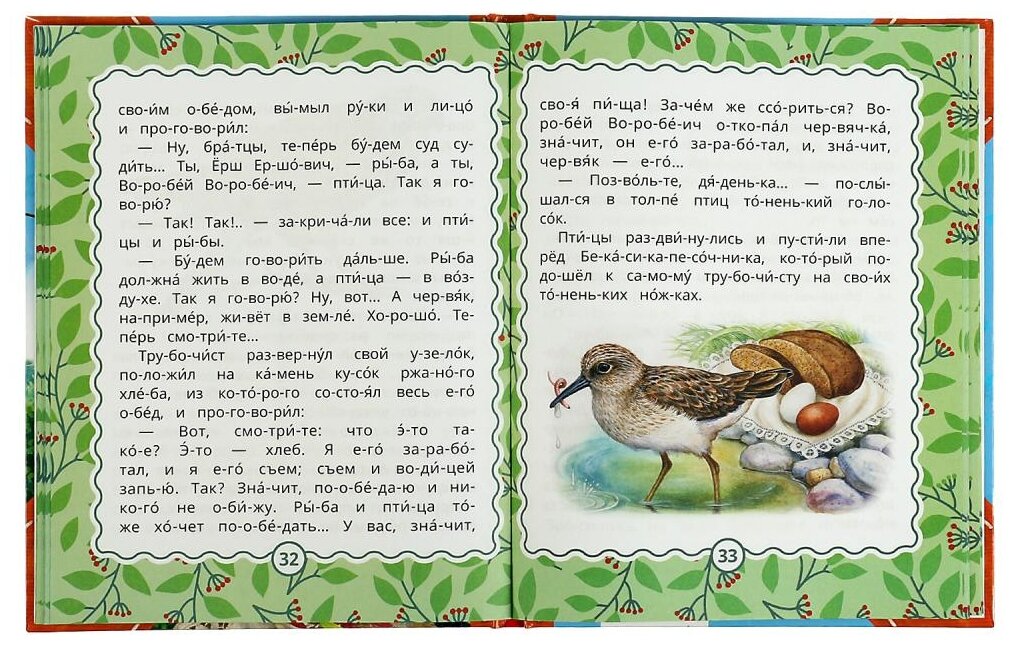 сво-и́м о-бе́-дом, вы́-мыл ру́-ки и ли-цо́
и про-го-во-ри́л:
— Ну, бра́-тцы, те-пе́рь бу́-дем суд су-
ди́ть... Ты, Ёрш Ер-шо́-вич, — ры́-ба, а ты,
Во-ро-бе́й Во-ро-бе́-ич, — пти́-ца. Так я го-
во-рю́?
— Так! Так!.. — за-кри-ча́-ли все: и пти́-
цы и ры́-бы.
— Бу́-дем го-во-ри́ть да́ль-ше. Ры́-ба
дол-жна́ жить в во-де́, а пти́-ца — в во́з-
ду-хе. Так я го-во-рю́? Ну, вот... А чер-вя́к,
на-при-ме́р, жи-вёт в зем-ле́. Хо-ро-шо́. Те-
пе́рь смо-три́-те...
Тру-бо-чи́ст раз-вер-ну́л свой у-зе-ло́к,
по-ло-жи́л на ка́-мень ку-со́к ржа-но́-го
хле́-ба, из ко-то́-ро-го со-сто-я́л весь е-го́
о-бе́д, и про-го-во-ри́л:
— Вот, смо-три́-те: что э́-то та-
ко́-е? Э́-то — хлеб. Я е-го́ за-ра-бо́-
тал, и я е-го́ съем; съем и во-ди́-цей
запь-ю́. Так? Зна́-чит, по-о-бе́-да-ю и ни-
ко-го́ не о-би́-жу. Ры́-ба и пти́-ца то́-
же хо́-чет по-о-бе́-дать... У вас, зна́-чит,
32
сво-я́ пи́-ща! За-че́м же ссо́-рить-ся? Во-
ро-бе́й Во-ро-бе́-ич о-тко-па́л чер-вяч-ка́,
зна́-чит, он е-го́ за-ра-бо́-тал, и, зна́-чит,
чер-вя́к — е-го́...
— Поз-во́ль-те, дя́-день-ка... — по-слы́-
шал-ся в тол-пе́ птиц то́-нень-кий го-ло-
со́к.
Пти́-цы раз-дви́-ну-лись и пу-сти́-ли впе-
рёд Бе-ка́-си-ка-пе-со́ч-ни-ка, ко-то́-рый по-
до-шёл к са-мо-му́ тру-бо-чи́с-ту на сво-и́х
то́-нень-ких но́ж-ках.
33